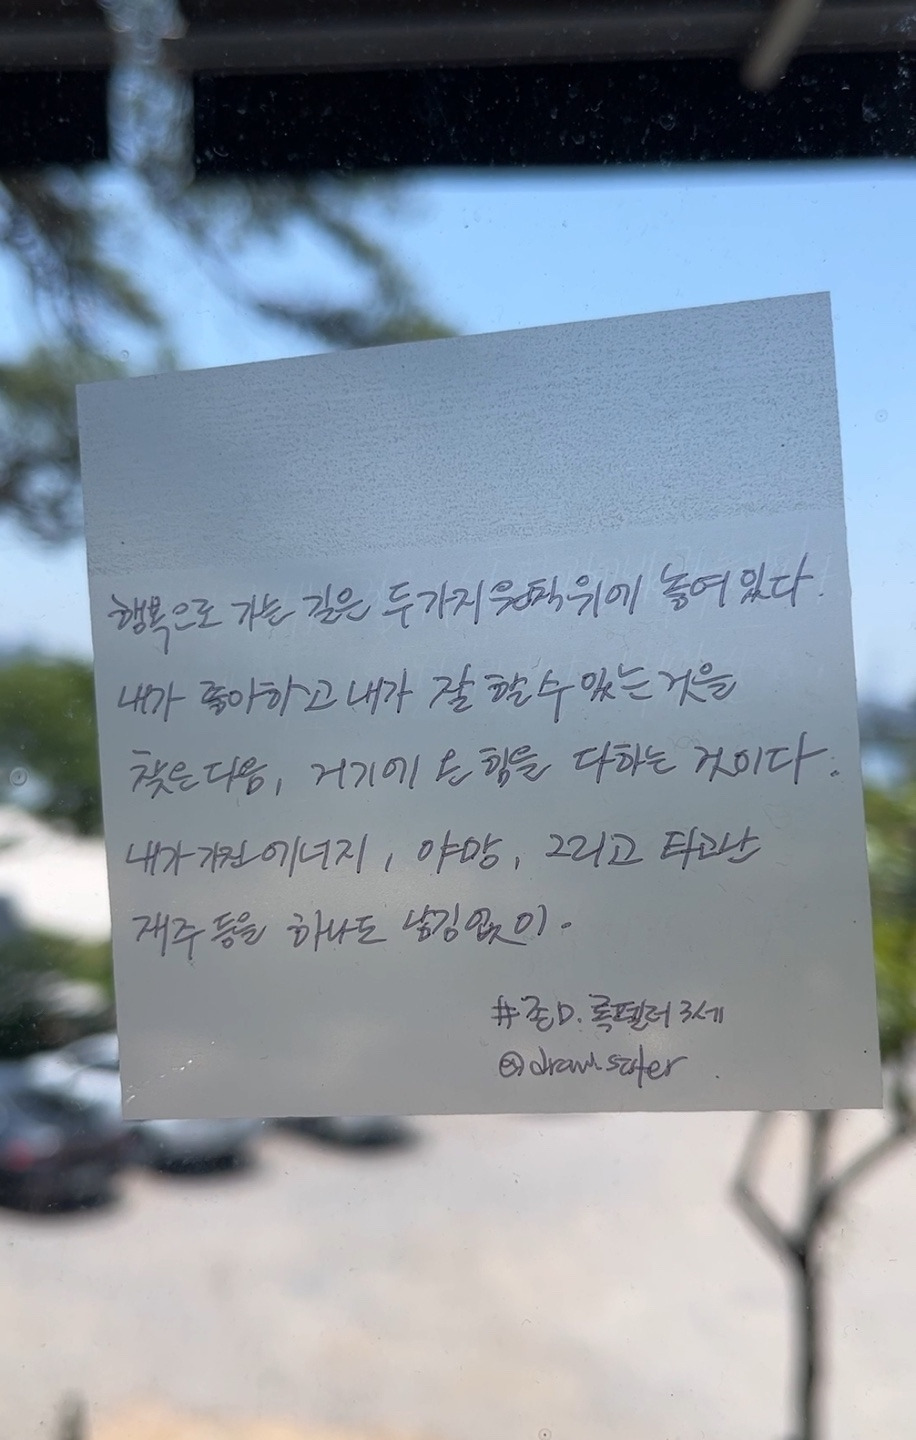 행복으로 가는 길은 두가지 원칙 위에 놓여있다.
내가 좋아하고 내가 잘 할 수 있는 것을
찾은다음, 거기에 온 힘을 다하는 것이다.
내가 가진 에너지, 야망, 그리고 타고난
재주 등을 하나도 남김없이.
#존D. 록펠러 3세